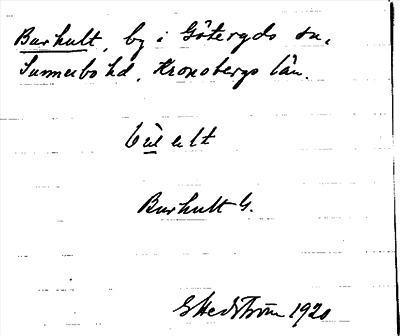 Burhult, by i Göteryds sn,
Sunnerbo hd, Kronobergs län.
Burhult G.
GHedström 1920